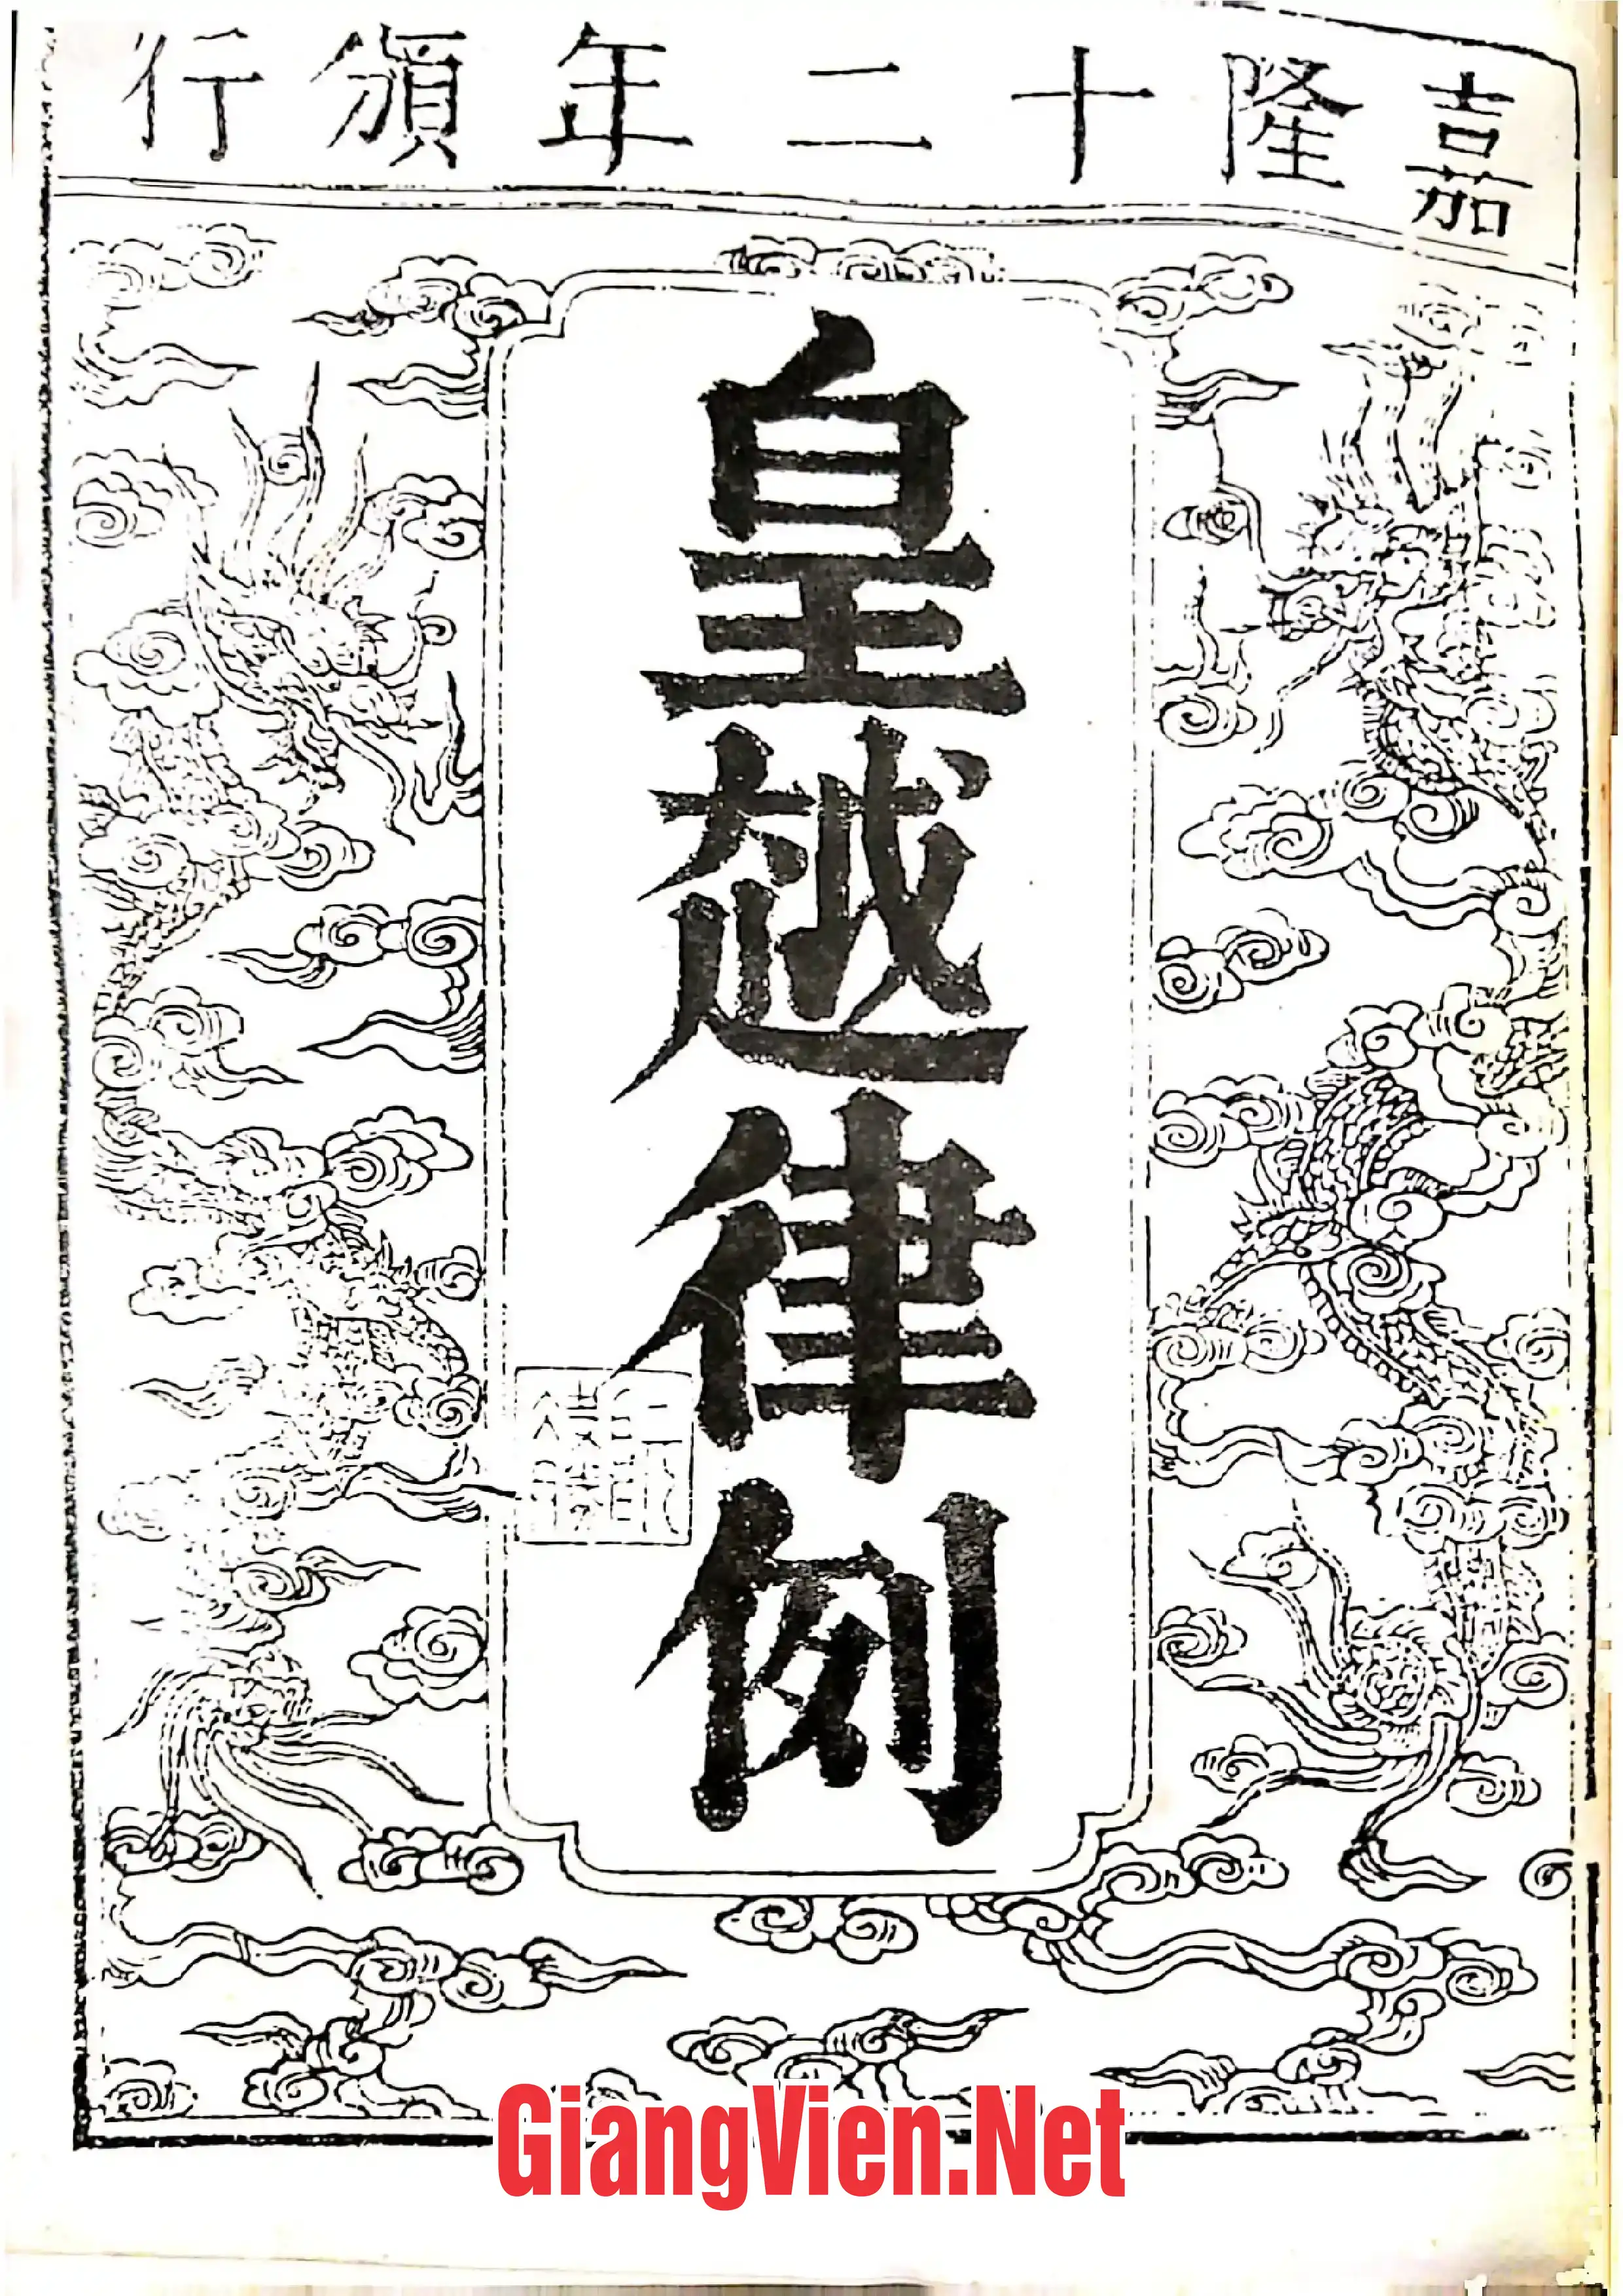 嘉隆十二年頒行
皇越律例
GiangVien.Net